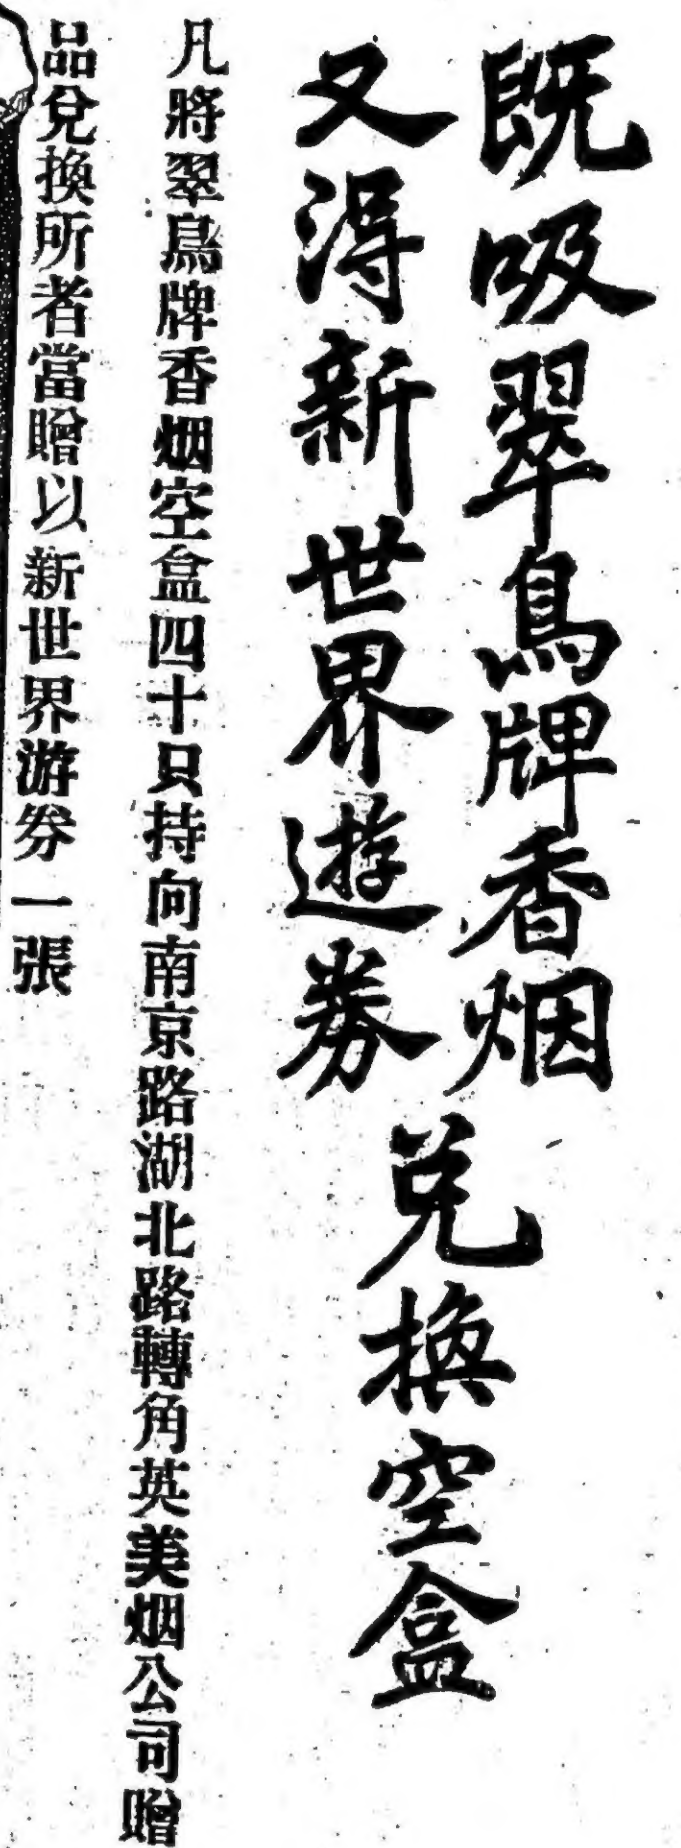 既吸翠鳥牌香烟
又得新世界遊券
兌換空盒
凡將翠鳥牌香烟空盒四十只持向南京路湖北路轉角英美烟公司贈
品兌換所者當贈以新世界游券一張